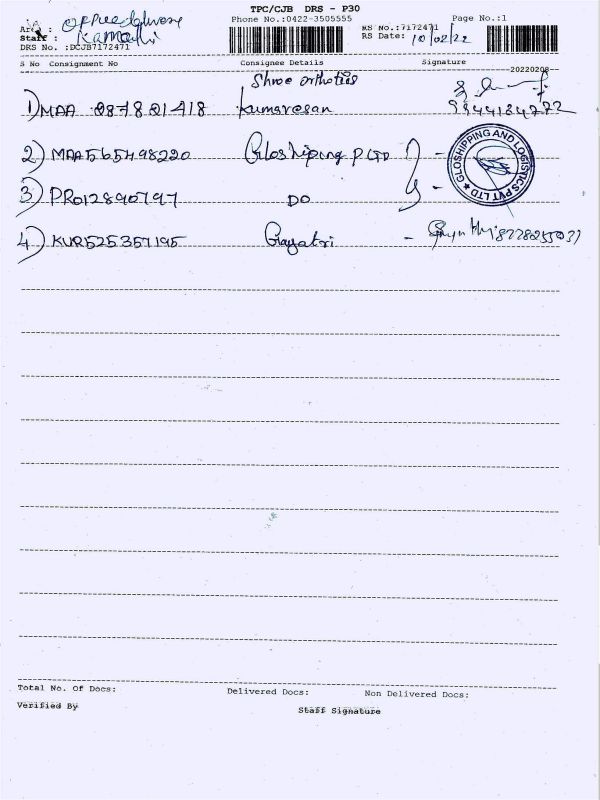 TPC/CJB DRS - P30
Phone No.:0422-3505555
Page No.:1
Staff :
DRS No. :DCJB7172471
RS No.:7172471
RS Date: 10/02/22
S No Consignment No
Consignee Details
Signature
20220208
Shree orthotics
1) MAA 087821418 Kumaresan
2) MAA565498220 Gloshiping P LTD
GLOSHIPPING AND LOGISTICS PVT LTD
3) PRO12890797 DO
4) KUR525357195 Gayatri -
Total No. Of Docs:
Delivered Docs:
Non Delivered Docs:
Verified By
Staff Signature